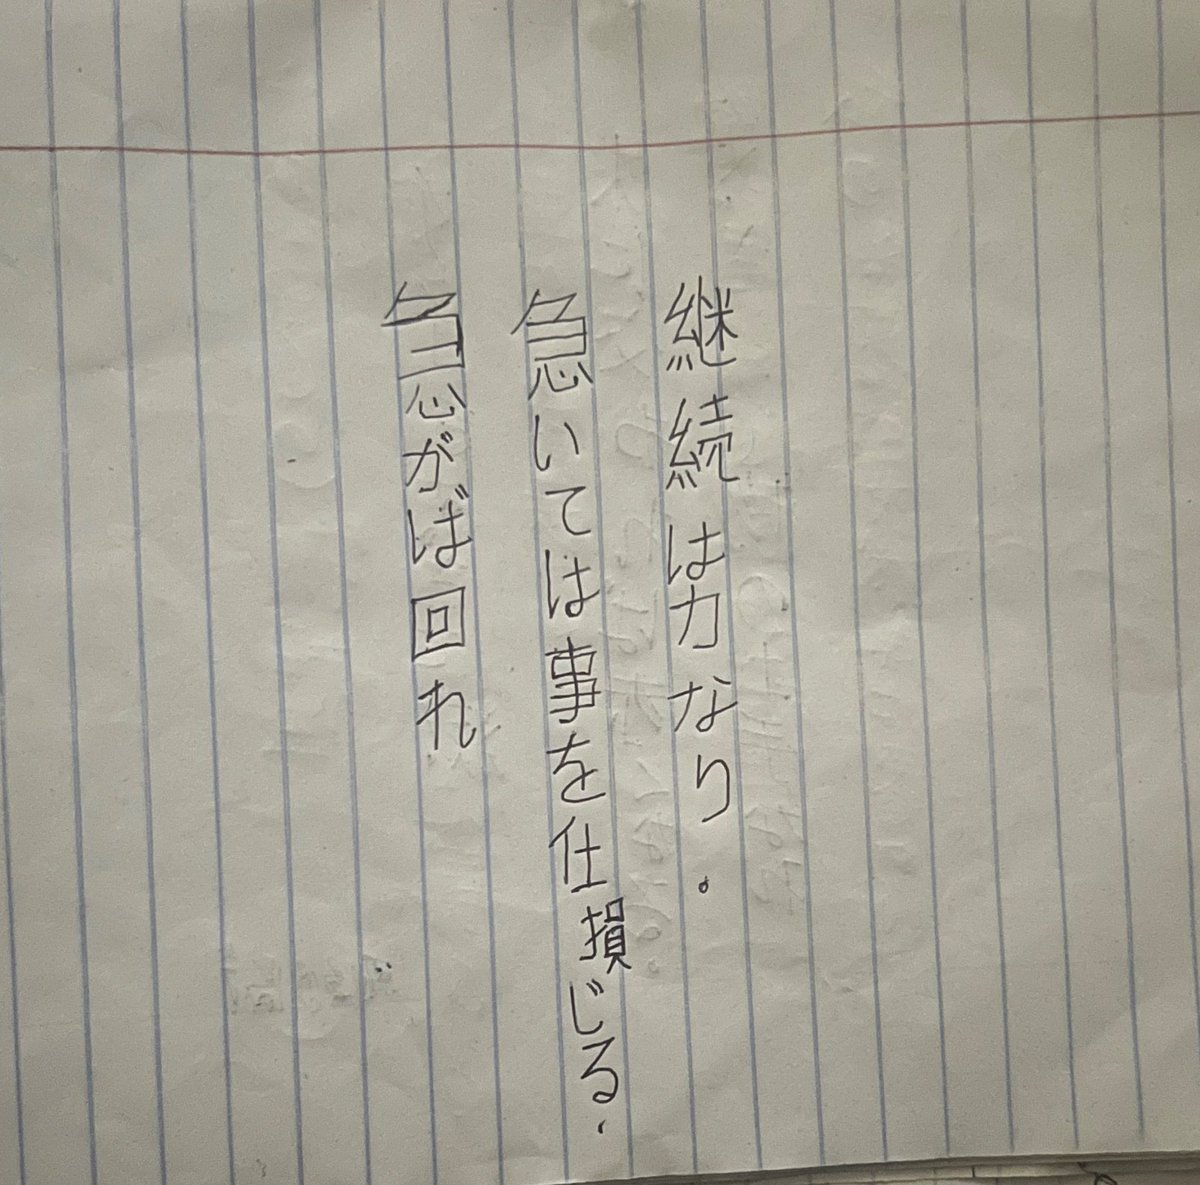 継続は力なり。
急いては事を仕損じる.
急がば回れ